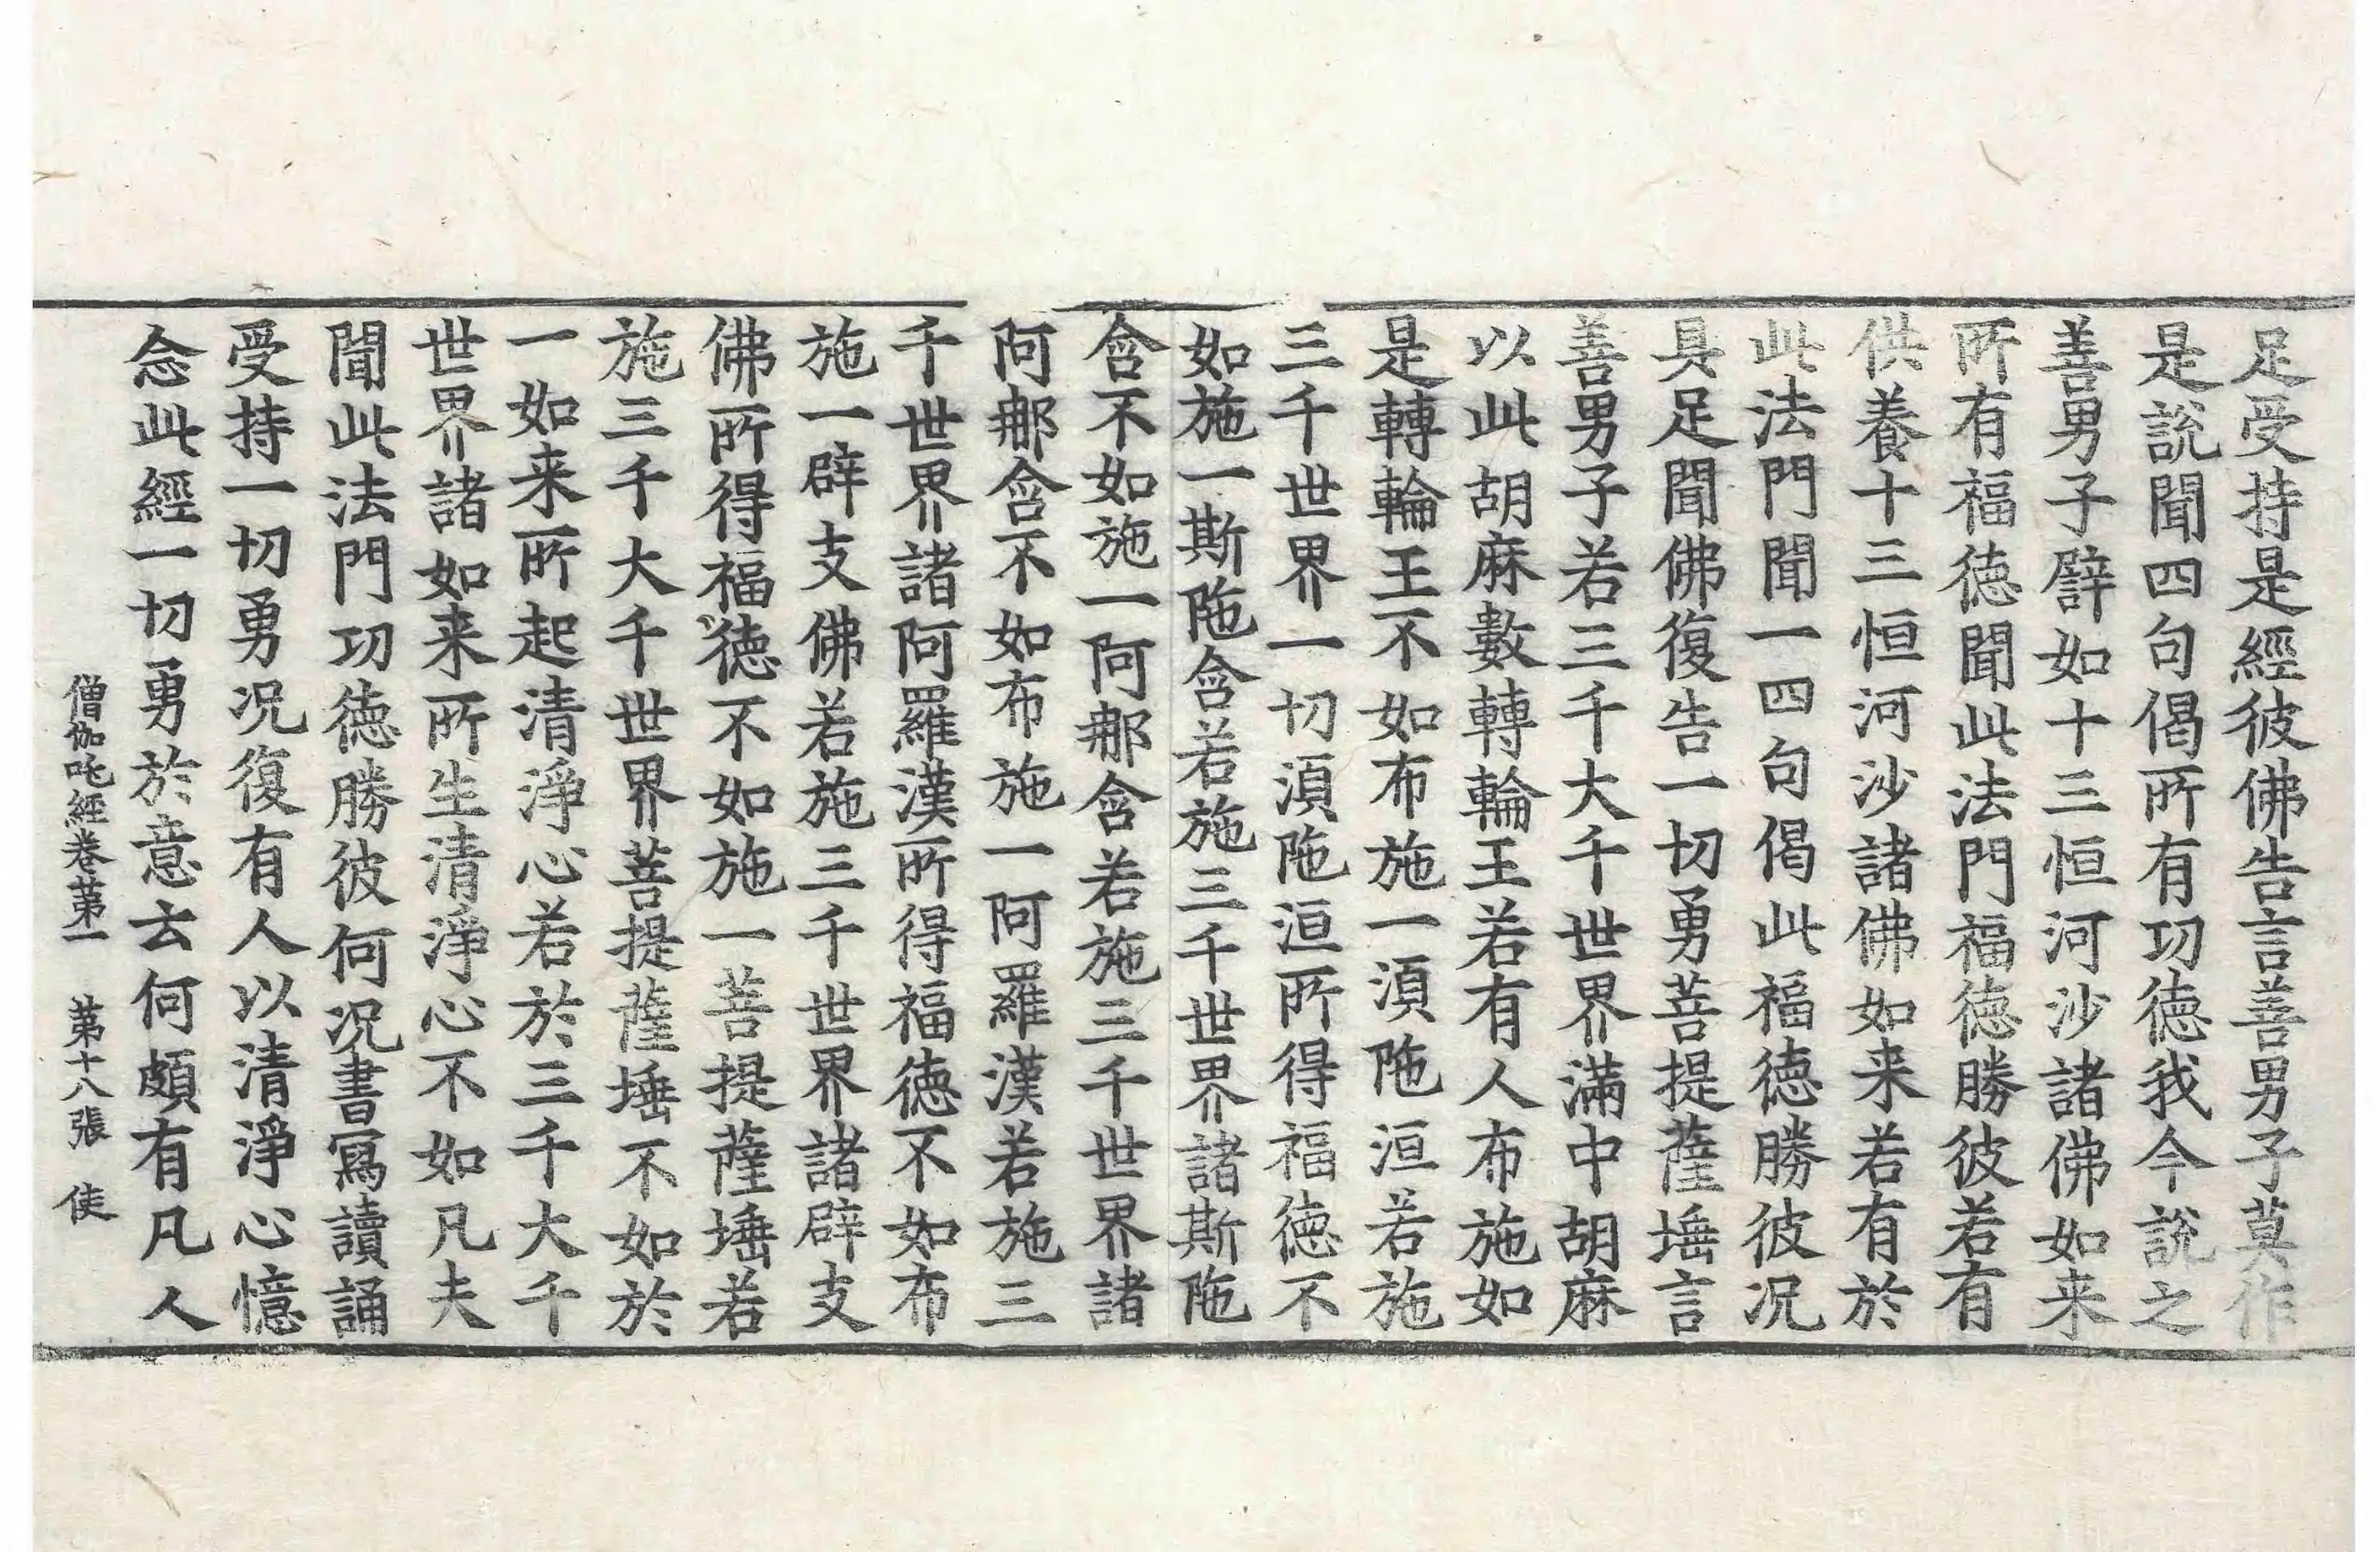 足受持是經彼佛告言善男子莫作
是說聞四句偈所有功徳我今說之
善男子譬如十三恒河沙諸佛如来
所有福徳聞此法門福徳勝彼若有
供養十三恒河沙諸佛如来若有於
此法門聞一四句偈此福徳勝彼况
具足聞佛復告一切勇菩提薩埵言
善男子若三千大千世界滿中胡麻
以此胡麻數轉輪王若有人布施如
是轉輪王不如布施一湏陁洹若施
三千世界一切湏陁洹所得福徳不
如施一斯陁含若施三千世界諸斯陁
含不如施一阿那含若施三千世界諸
阿那含不如布施一阿羅漢若施三
千世界諸阿羅漢所得福徳不如布
施一辟支佛若施三千世界諸辟支
佛所得福徳不如施一菩提薩埵若
施三千大千世界菩提薩埵不如於
一如来所起清淨心若於三千大千
世界諸如来所生清淨心不如凡夫
聞此法門功徳勝彼何况書寫讀誦
受持一切勇况復有人以清淨心憶
念此經一切勇於意云何頗有凡人
僧伽吒經卷苐一 苐十八張 使